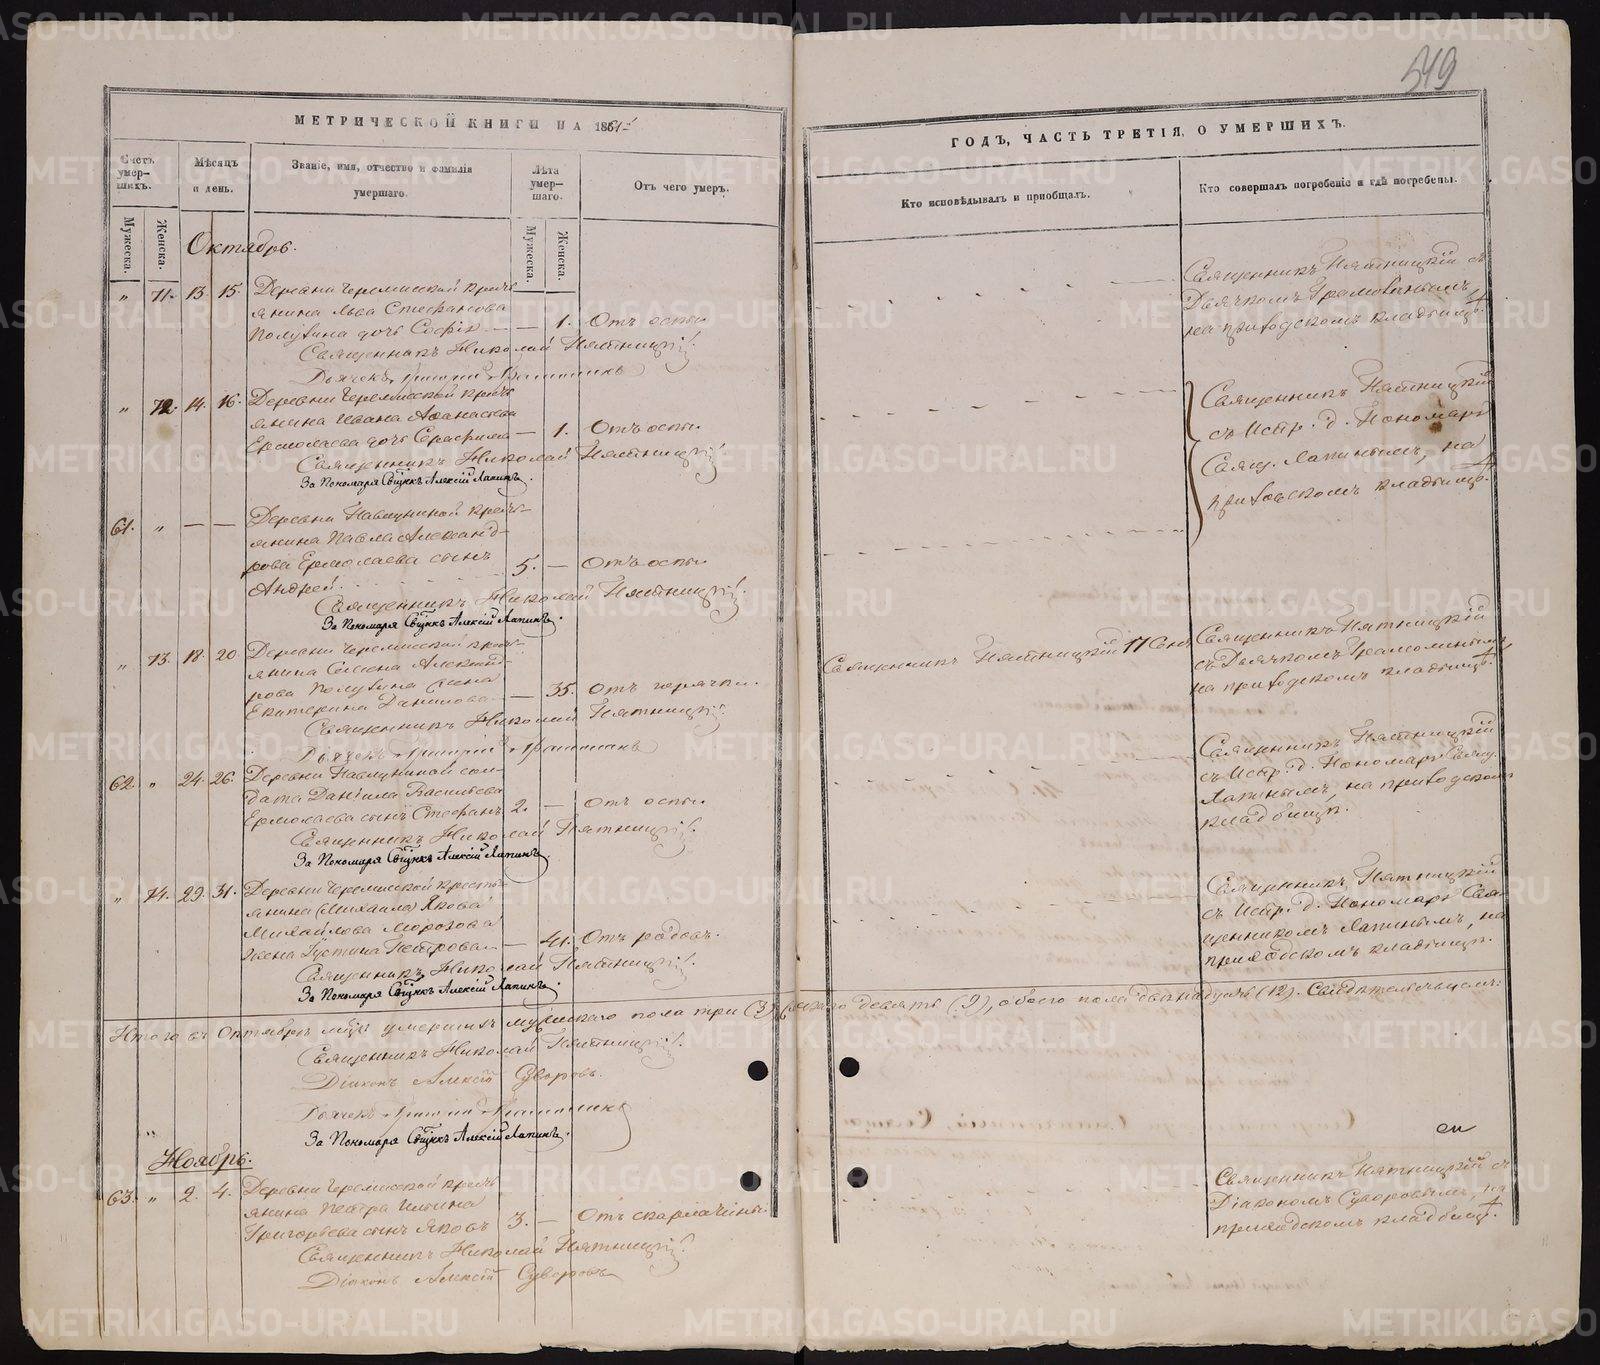 549
МЕТРИЧЕСКОЙ КНИГИ НА 1861
ГОДЪ, ЧАСТЬ ТРЕТІЯ, О УМЕРШИХЪ.
Счетъ умерших.
Мѣсяцъ и день.
Званіе, имя, отчество и фамилія умершаго.
Лѣта умершаго.
Отъ чего умеръ.
Кто исповѣдывалъ и пріобщалъ.
Кто совершалъ погребеніе и гдѣ погребены.
Мужеска.
Женска.
Мужеска.
Женска.
Октябрь.
" 71. 13. 15. Деревни Черемисской кресть
янина Льва Стефанова
Полувина дочь Софія — — 1. Отъ оспы.
Священникъ Николай Пятницкій
Дьячекъ
Священникъ Пятницкій съ
Дьячкомъ
на приходскомъ кладбищѣ.
" 72. 14. 16. Деревни Черемисской кресть
янина Ивана Аѳанасьева
Ермолаева дочь Серафима — 1. Отъ оспы.
Священникъ Николай Пятницкій
За Пономаря Свщнкъ Алексій Лапинъ.
Священникъ Пятницкій
съ Испр. д. Пономаря
Свящ. Лапинымъ, на
приходскомъ кладбищѣ.
61. " — — Деревни кресть
янина Павла Александ
рова Ермолаева сынъ
Андрей. 5. — Отъ оспы.
Священникъ Николай Пятницкій
За Пономаря Свщнкъ Алексій Лапинъ.
" 73. 18. 20 Деревни Черемисской кресть
янина Семена Александ
рова Полувина жена
Екатерина Данилова — 35. Отъ горячки.
Священникъ Николай Пятницкій
Дьячекъ
Священникъ Пятницкій 17 Сего
Священникъ Пятницкій
съ Дьячкомъ
на приходскомъ кладбищѣ.
62. " 24. 26. Деревни сол
дата Даніила Васильева
Ермолаева сынъ Стефанъ 2. — Отъ оспы.
Священникъ Николай Пятницкій
За Пономаря Свщнкъ Алексій Лапинъ.
Священникъ Пятницкій
съ Испр. д. Пономаря Свящ.
Лапинымъ, на приходскомъ
кладбищѣ.
" 74. 29. 31. Деревни Черемисской кресть
янина (Михаила) Якова
Михайлова Морозова
жена Іустина Петрова — 41. Отъ родовъ.
Священникъ Николай Пятницкій
За Пономаря Свщнкъ Алексій Лапинъ.
Священникъ Пятницкій
съ Испр. д. Пономаря Свя
щенникомъ Лапинымъ, на
приходскомъ кладбищѣ.
Итого въ Октябрѣ мцѣ умершихъ мужескаго пола три (3), женскаго девять (9), обоего пола двѣнадцать (12). Свидѣтельствуемъ:
Священникъ Николай Пятницкій
Діаконъ Алексій Суворовъ.
Дьячекъ
За Пономаря Свщнкъ Алексій Лапинъ.
Ноябрь.
63. " 2. 4. Деревни Черемисской кресть
янина Петра Ильина
Григорьева сынъ Яковъ 3. — Отъ скарлатины.
Священникъ Николай Пятницкій
Діаконъ Алексій Суворовъ
Священникъ Пятницкій съ
Діакономъ Суворовымъ, на
приходскомъ кладбищѣ.
METRIKI.GASO-URAL.RU